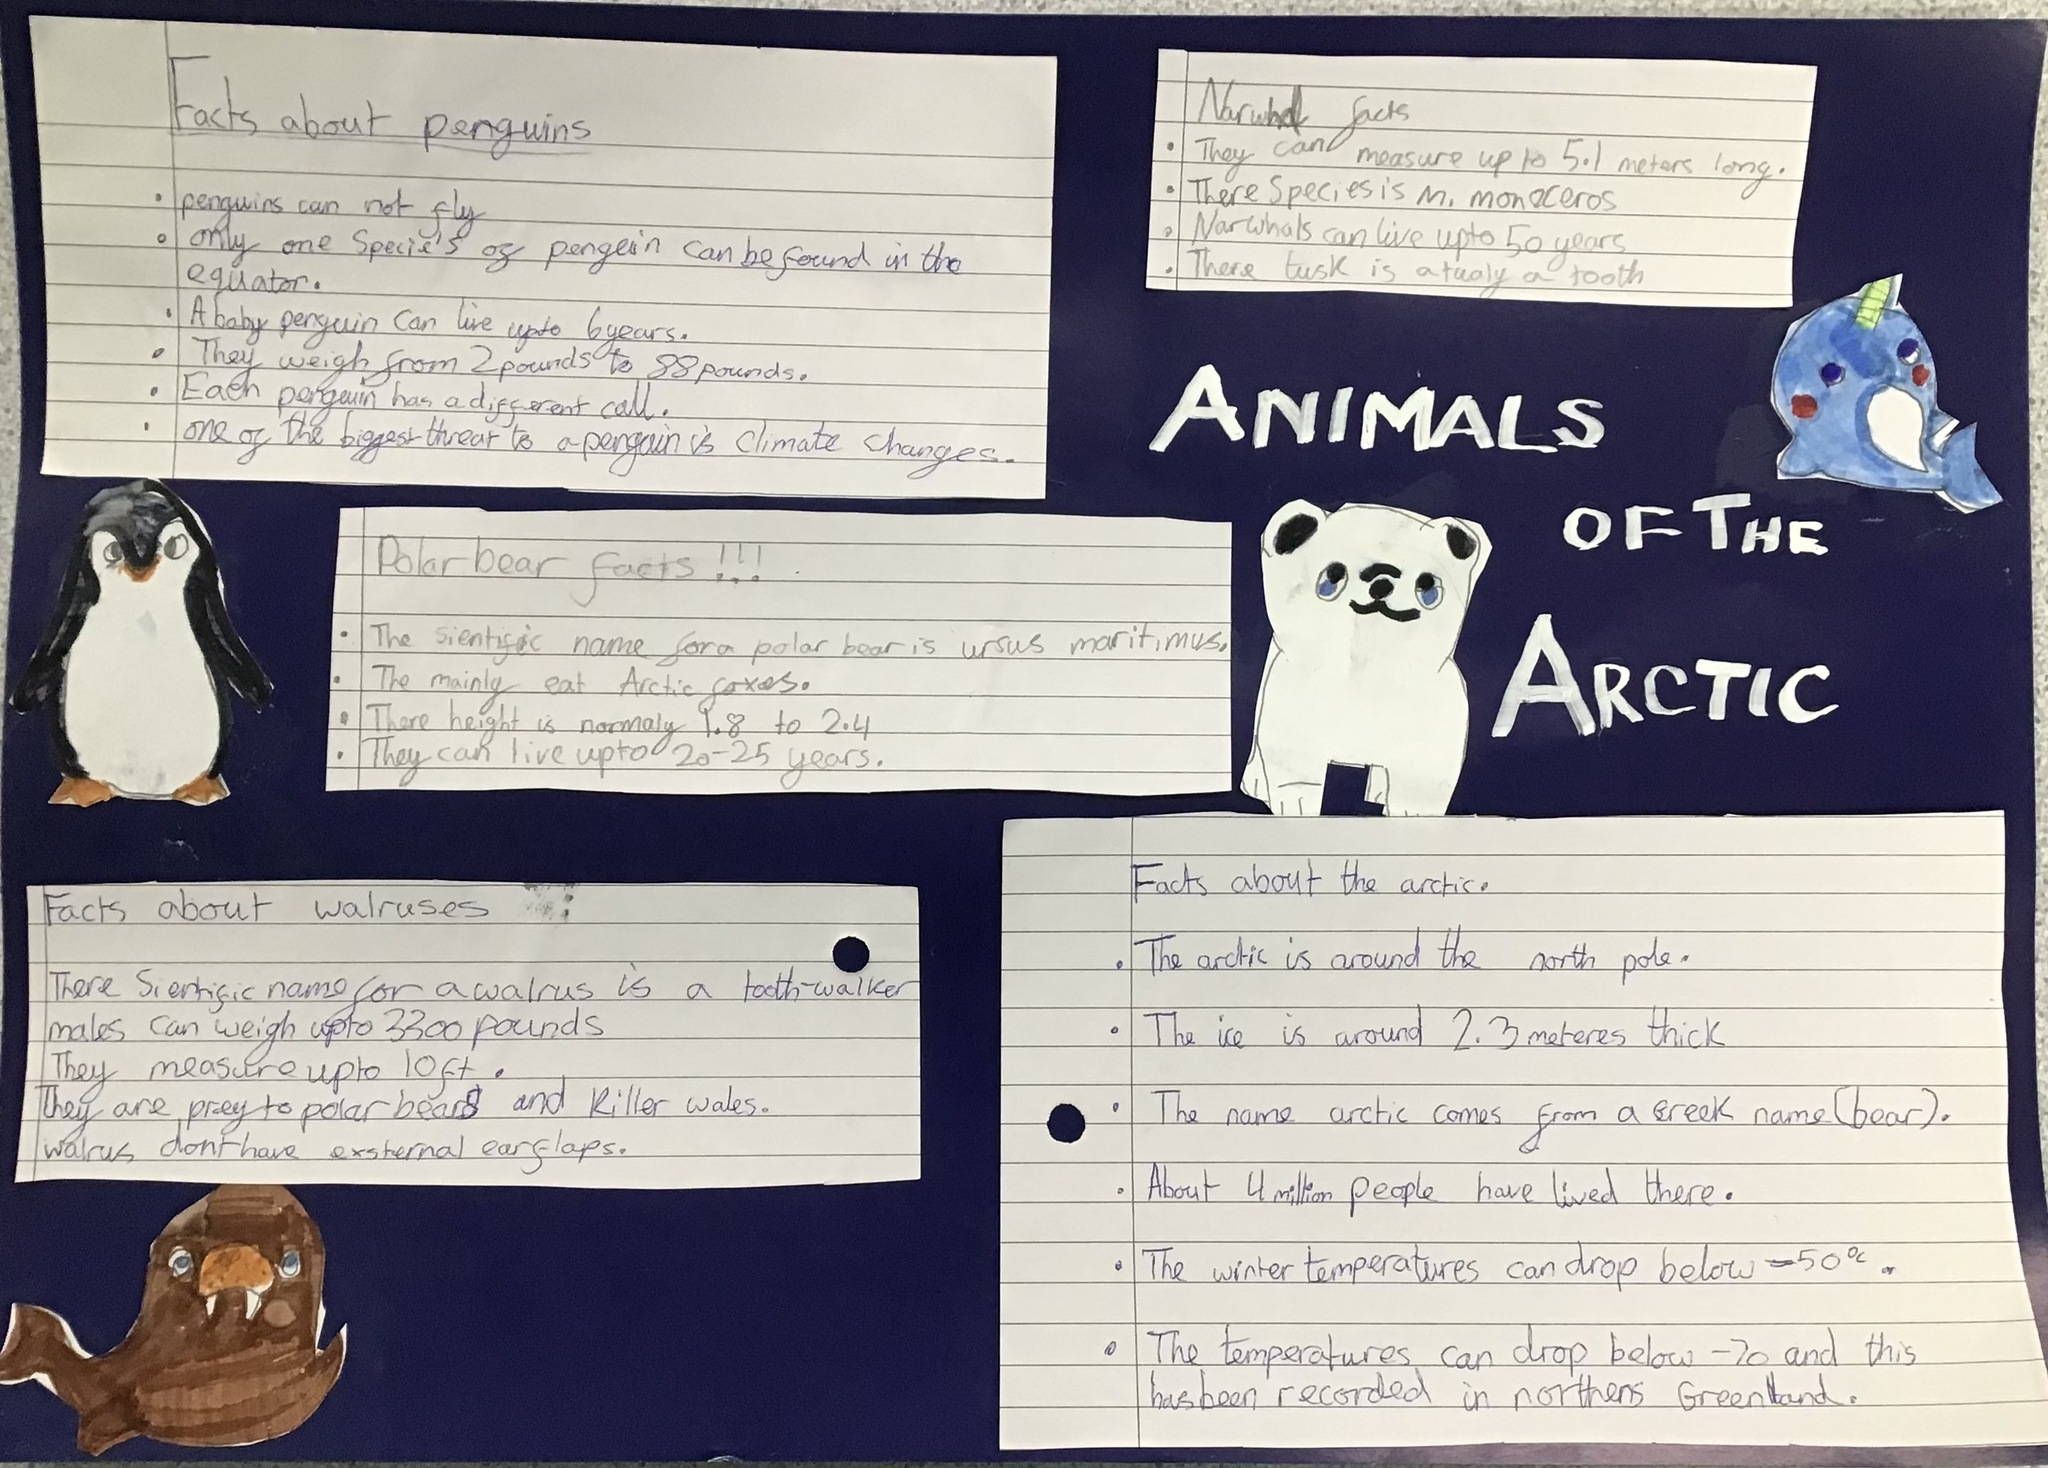 Facts about penguins
• penguins can not fly
• only one Specie's of pengein can be found in the
equator.
• A baby penguin can live upto 6 years.
• They weigh from 2 pounds to 88 pounds.
• Each penguin has a different call.
• one of the biggest threat to a penguin is climate changes.
Narwhal facts
• They can measure up to 5.1 meters long.
• There Species is M. monoceros
• Narwhals can live upto 50 years
• There tusk is atualy a tooth
ANIMALS
OF THE
ARCTIC
Polar bear facts !!!
• The sientific name for a polar bear is ursus maritimus.
• The mainly eat Arctic foxes.
• There height is normaly 1.8 to 2.4
• They can live upto 20-25 years.
Facts about walruses
There Sientific name for a walrus is a tooth-walker
males can weigh upto 3300 pounds
They measure upto 10ft.
They are prey to polar bears and killer wales.
walrus dont have exsternal earflaps.
Facts about the arctic.
• The arctic is around the north pole.
• The ice is around 2.3 meteres thick
• The name arctic comes from a Greek name (bear).
• About 4 million people have lived there.
• The winter temperatures can drop below -50°c.
• The temperatures can drop below -70 and this
has been recorded in northens Greenland.